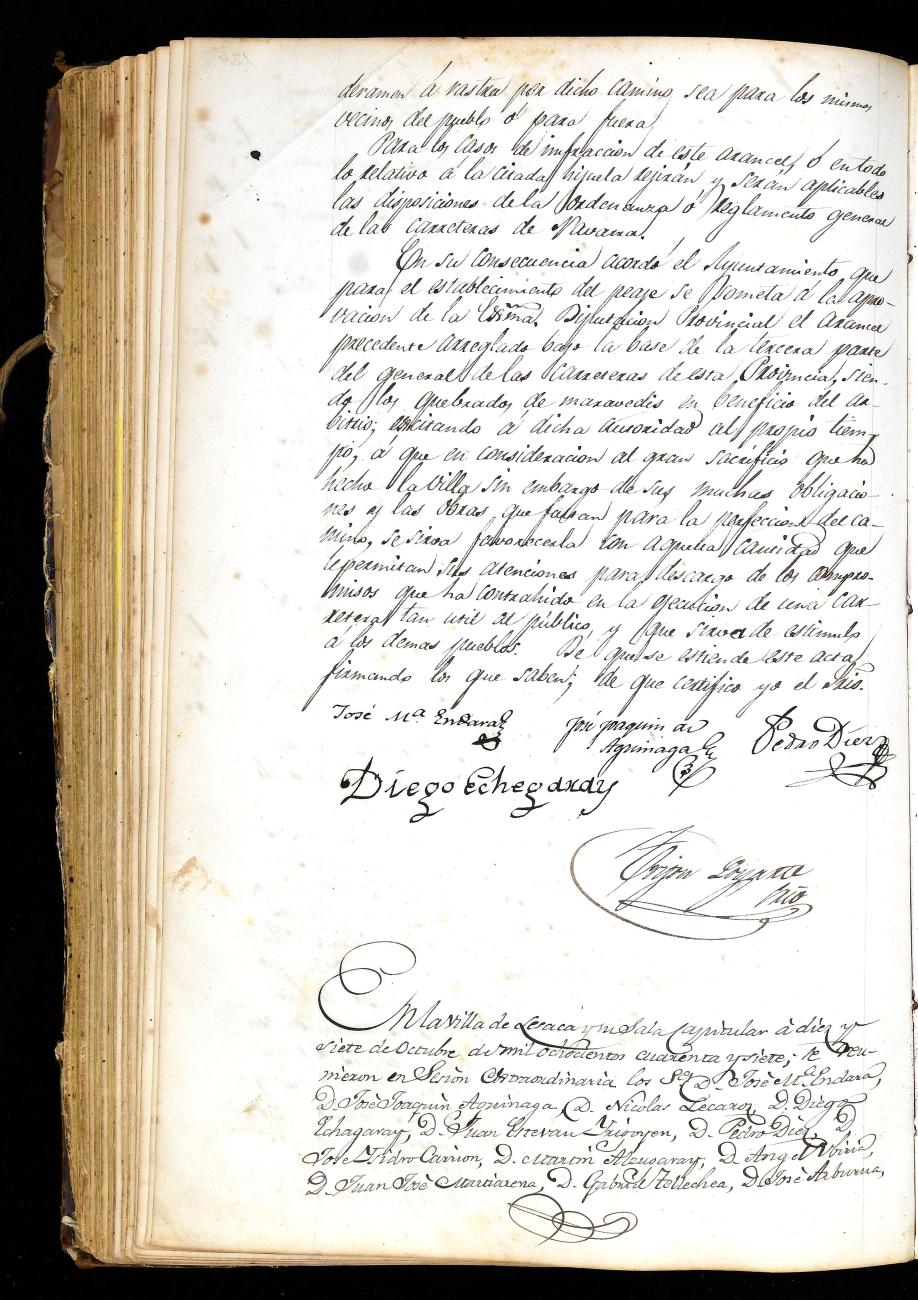 deramen á rastra por dicho camino, sea para los mismos
vecinos del pueblo ó para fuera.
Para los casos de infraccion de este arancel, ó en todo
lo relativo á la citada hijuela rejirán y serán aplicables
las disposiciones de la ordenanza ó reglamento general
de las carreteras de Navarra.
En su consecuencia acordó el Ayuntamiento, que
para el establecimiento del peaje se someta á la apro-
vacion de la Exma. Diputacion Provincial el arancel
precedente arreglado bajo la base de la tercera parte
del general de las carreteras de esta Provincia, sien-
do los quebrados de maravedis en beneficio del ar-
bitrio; escitando á dicha autoridad al propio tiem-
po, á que en consideracion al gran sacrificio que ha
hecho la Villa sin embargo de sus muchas obligacio-
nes y las obras que faltan para la perfeccion del ca-
mino, se sirva favorecerla con aquella cantidad que
le permitan sus atenciones para descargo de los compro-
misos que ha contrahido en la ejecucion de una car-
retera tan util al público y que sirva de estimulo
á los demas pueblos. De que se estiende este acta
firmando los que saben; de que certifico yo el Srio.
José Mª Endara
José Joaquin de
Aguinaga
Pedro Diez
Diego Echegaray
Srio
En la Villa de Lesaca y en Sala Capitular á diez y
siete de Octubre de mil ochocientos cuarenta y siete; se reu-
nieron en Sesion Extraordinaria los Ses D. José M.ª Endara,
D. José Joaquin Aguinaga, D. Nicolas Lecaroz, D. Diego
Echagaray, D. Juan Estevan Yrigoyen, D. Pedro Diez, D.
José Ysidro Carrion, D. Martin Alzugaray, D. Angel Ubiria,
D. Juan José Martiarena, D. Gabriel Tellechea, D. José Arburua,